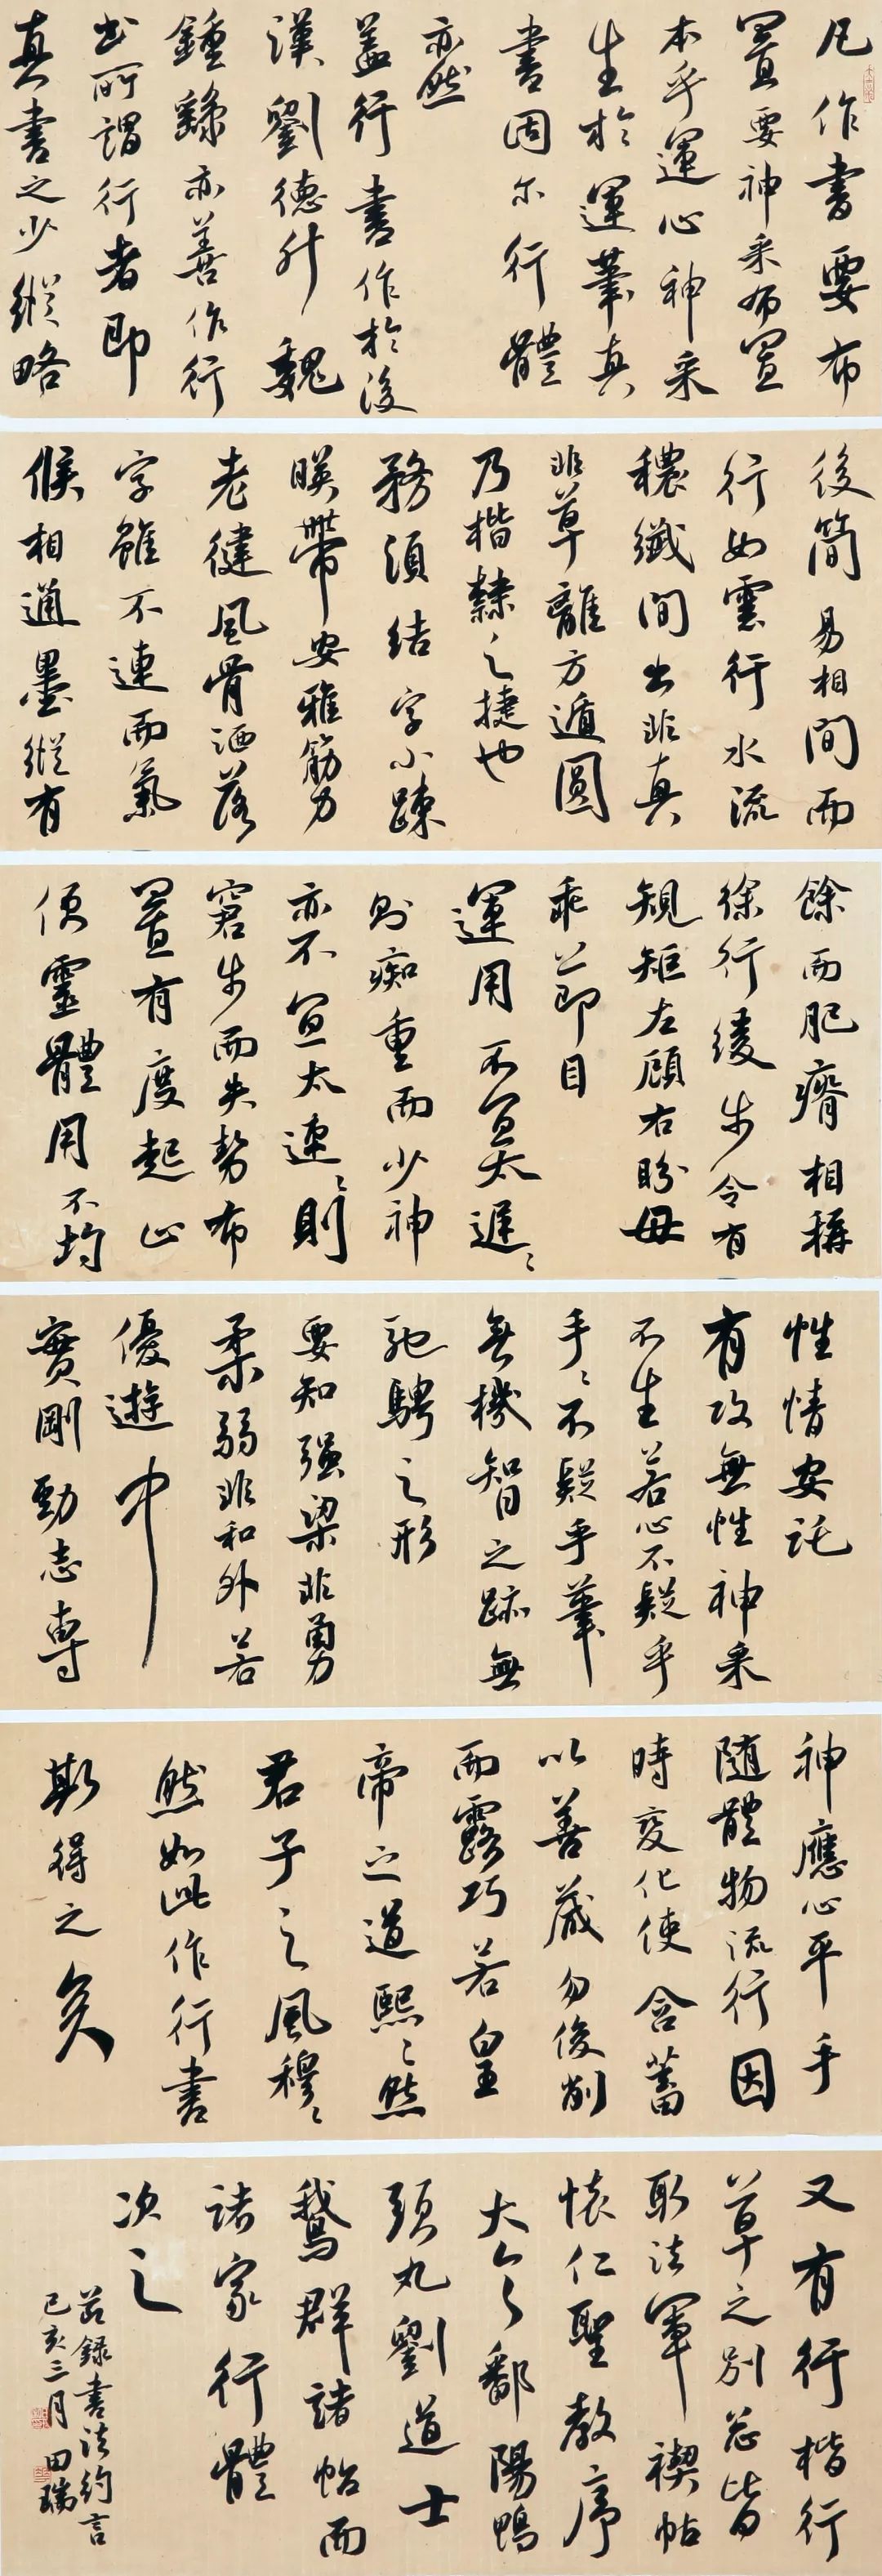 凡作書要布
置要神采布置
本乎運心神采
生於運筆真
書固尔行體
亦然
蓋行書作於後
漢劉德升魏
鍾繇亦善作行
書所謂行者即
真書之少縱略
後簡易相間而
行如雲行水流
穠纖間出非真
非草離方遁圓
乃楷隸之捷也
務須結字小疎
暎帶安雅筋力
老健風骨洒落
字雖不連而氣
候相通墨縱有
餘而肥瘠相稱
徐行緩步令有
規矩左顧右盼毋
乖節目
運用不宜太遲〻
則痴重而少神
亦不宜太速〻則
窘步而失勢布
置有度起止
便靈體用不均
性情安託
有攻無性神采
不生若心不疑乎
手〻不疑乎筆
無機智之跡無
馳騁之形
要知強梁非勇
柔弱非和外若
優遊中
實剛勁志專
神應心平手
隨體物流行因
時變化使含蓄
以善藏勿峻削
而露巧若皇
帝之道熙〻然
君子之風穆〻
然如此作行書
斯得之矣
又有行楷行
草之別总皆
取法右軍禊帖
懷仁聖教序
大令鄱陽鴨
頭丸劉道士
鵝群諸帖而
諸家行體
次之
節録書法約言
己亥三月 田瑞